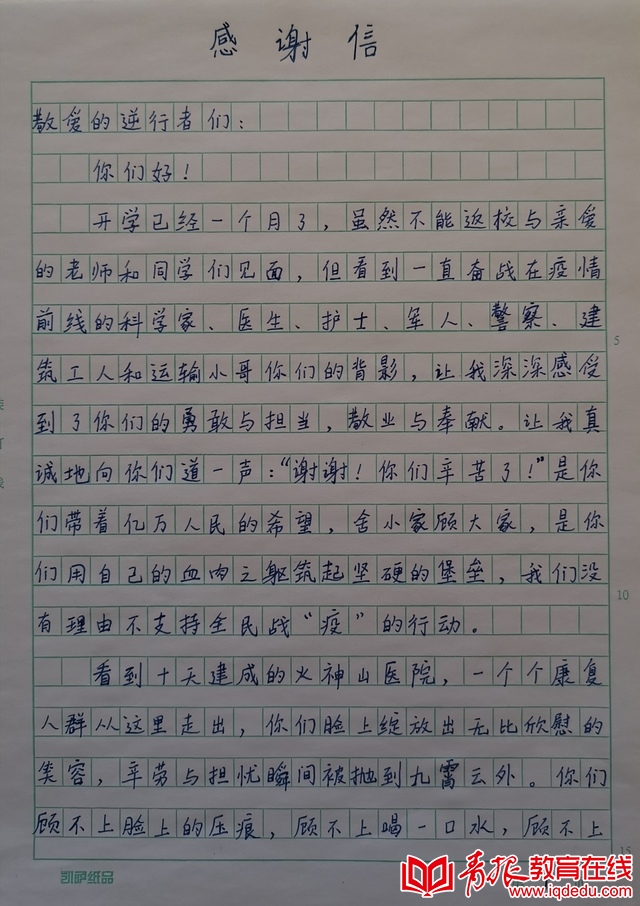 感谢信
敬爱的逆行者们：
你们好！
开学已经一个月了，虽然不能返校与亲爱
的老师和同学们见面，但看到一直奋战在疫情
前线的科学家、医生、护士、军人、警察、建
筑工人和运输小哥你们的背影，让我深深感受
到了你们的勇敢与担当，敬业与奉献。让我真
诚地向你们道一声：“谢谢！你们辛苦了！”是你
们带着亿万人民的希望，舍小家顾大家，是你
们用自己的血肉之躯筑起坚硬的堡垒，我们没
有理由不支持全民战“疫”的行动。
看到十天建成的火神山医院，一个个康复
人群从这里走出，你们脸上绽放出无比欣慰的
笑容，辛劳与担忧瞬间被抛到九霄云外。你们
顾不上脸上的压痕，顾不上喝一口水，顾不上
5
10
15
凯萨纸品
青报教育在线
www.iqdedu.com